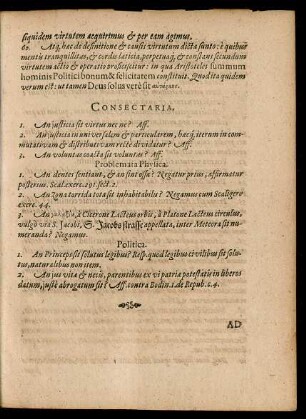 siquidem virtutem acquirimus & per eam agimus.
60. Atq, hæc de definitione & causis virtutum dicta sunto: è quibus
mentis tranquillitas, & cordis lætitia perpetuaq, & constans secundum
virtutem actio & operatio proficiscitur: in qua Aristoteles summum
hominis Politici bonum & felicitatem constituit. Quod ita quidem
verum est: ut tamen Deus solus verè sit
CONSECTARIA.
1. An justicia sit virtus nec ne? Aff.
2. An justicia in universalem & particularem, hæcq, iterum in com-
mutativam & distributivam rectè dividatur? Aff.
3. An voluntas coacta sit voluntas? Aff.
Problemata Physica.
1. An dentes sentiant, & an sint ossa? Negatur prius, affirmatur
posterius. Scal. exerc. 291. sect. 2.
2. An Zona torrida tota sit inhabitabilis? Negamus cum Scaligero
exerc. 44.
3. An à Cicerone Lacteus orbis, à Platone Lacteus circulus,
vulgò via S. Jacobi, S. Jacobsstrasse appellata, inter Meteora sit nu-
meranda? Negamus.
Politica.
1. An Princeps sit solutus legibus? Resp. quod legibus civilibus sit solu-
tus, naturalibus non item.
2. An jus vitæ & necis, parentibus ex vi patriæ potestatis in liberos
datum, justè abrogatum sit? Aff. contra Bodin. 1. de Repub. c. 4.
AD